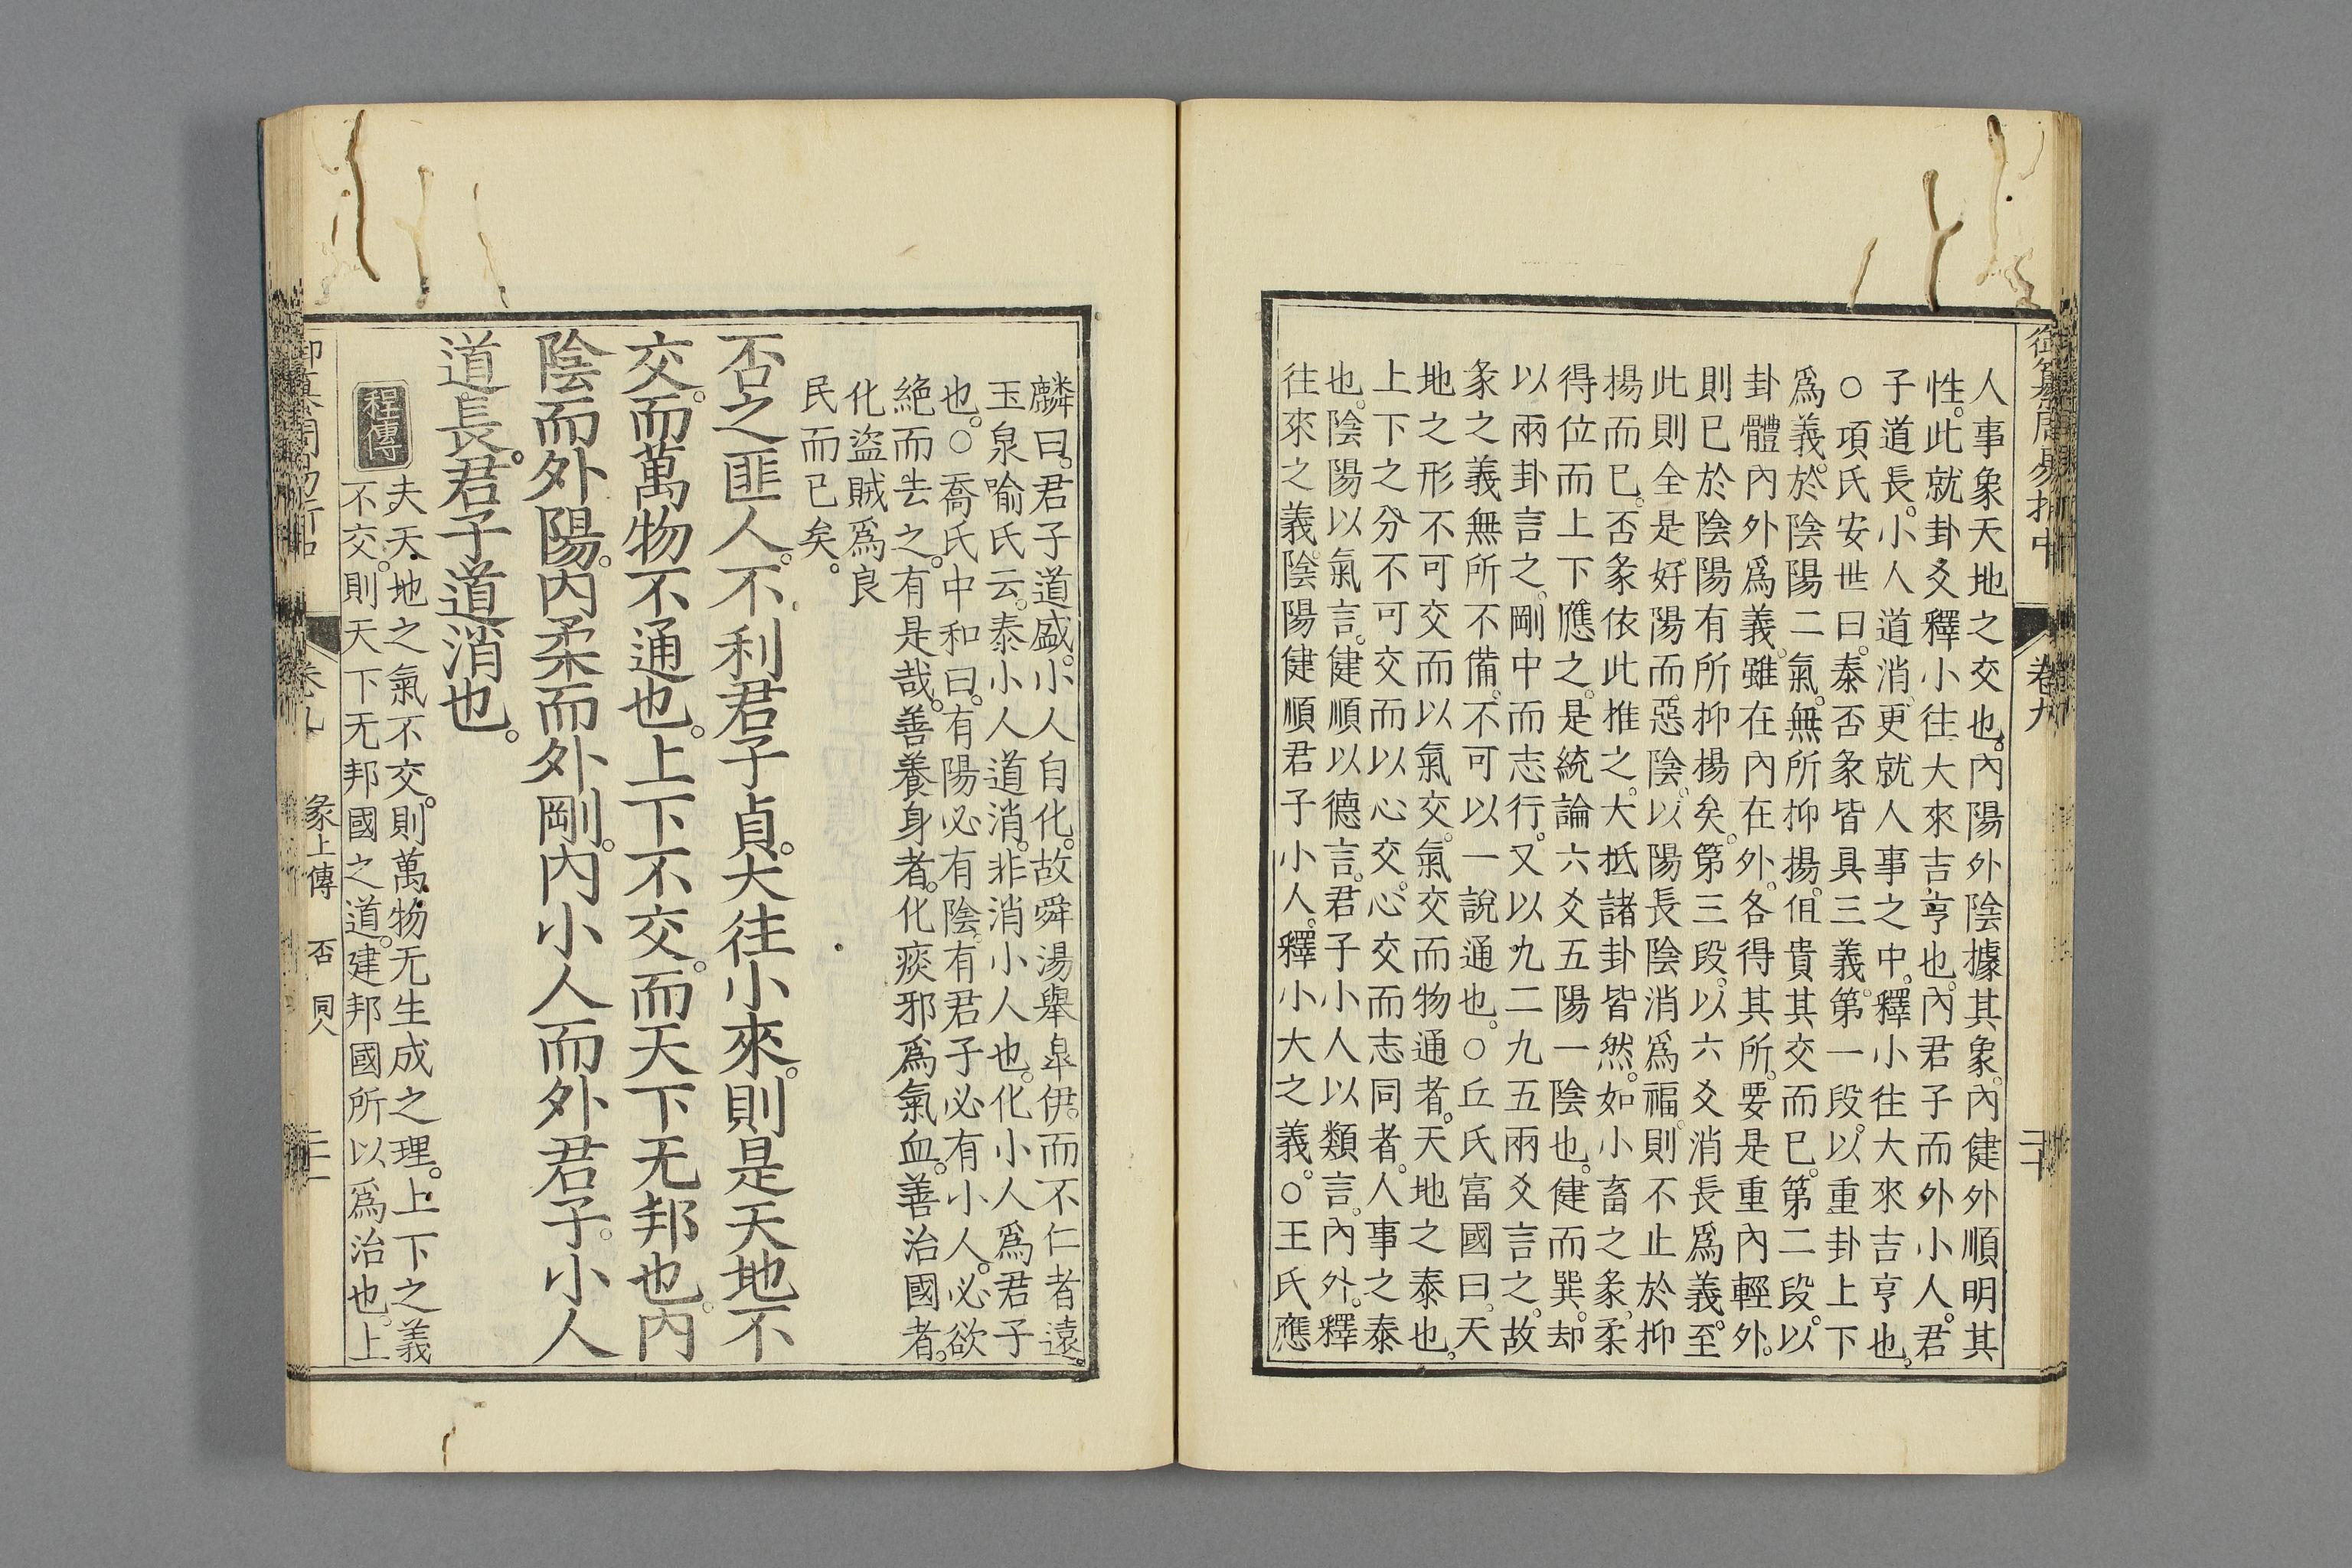 御纂周易折中 卷九 二十
人事象天地之交也。內陽外陰據其象。內健外順明其
性。此就卦爻釋小往大來吉亨也。內君子而外小人。君
子道長。小人道消。更就人事之中。釋小往大來吉亨也。
○項氏安世曰。泰否彖皆具三義。第一段。以重卦上下
爲義。於陰陽二氣。無所抑揚。但貴其交而已。第二段。以
卦體內外爲義。雖在內在外。各得其所。要是重內輕外。
則已於陰陽有所抑揚矣。第三段。以六爻消長爲義。至
此則全是好陽而惡陰。以陽長陰消爲福。則不止於抑
揚而已。否彖依此推之。大抵諸卦皆然。如小畜之彖。柔
得位而上下應之。是統論六爻五陽一陰也。健而巽。却
以兩卦言之。剛中而志行。又以九二九五兩爻言之。故
彖之義無所不備。不可以一說通也。○丘氏富國曰。天
地之形不可交而以氣交。氣交而物通者。天地之泰也。
上下之分不可交而以心交。心交而志同者。人事之泰
也。陰陽以氣言。健順以德言。君子小人以類言。內外。釋
往來之義。陰陽健順君子小人。釋小大之義。○王氏應
麟曰。君子道盛。小人自化。故舜湯舉臯伊。而不仁者遠。
玉泉喻氏云。泰小人道消。非消小人也。化小人爲君子
也。○喬氏中和曰。有陽必有陰。有君子必有小人。必欲
絕而去之。有是哉。善養身者。化痰邪爲氣血。善治國者。
化盜賊爲良
民而已矣。
否之匪人。不利君子貞。大往小來。則是天地不
交。而萬物不通也。上下不交。而天下无邦也。內
陰而外陽。內柔而外剛。內小人而外君子。小人
道長。君子道消也。
程傳
夫天地之氣不交。則萬物无生成之理。上下之義
不交。則天下无邦國之道。建邦國所以爲治也。上
御纂周易折中 卷九 彖上傳 否 同人 二十一